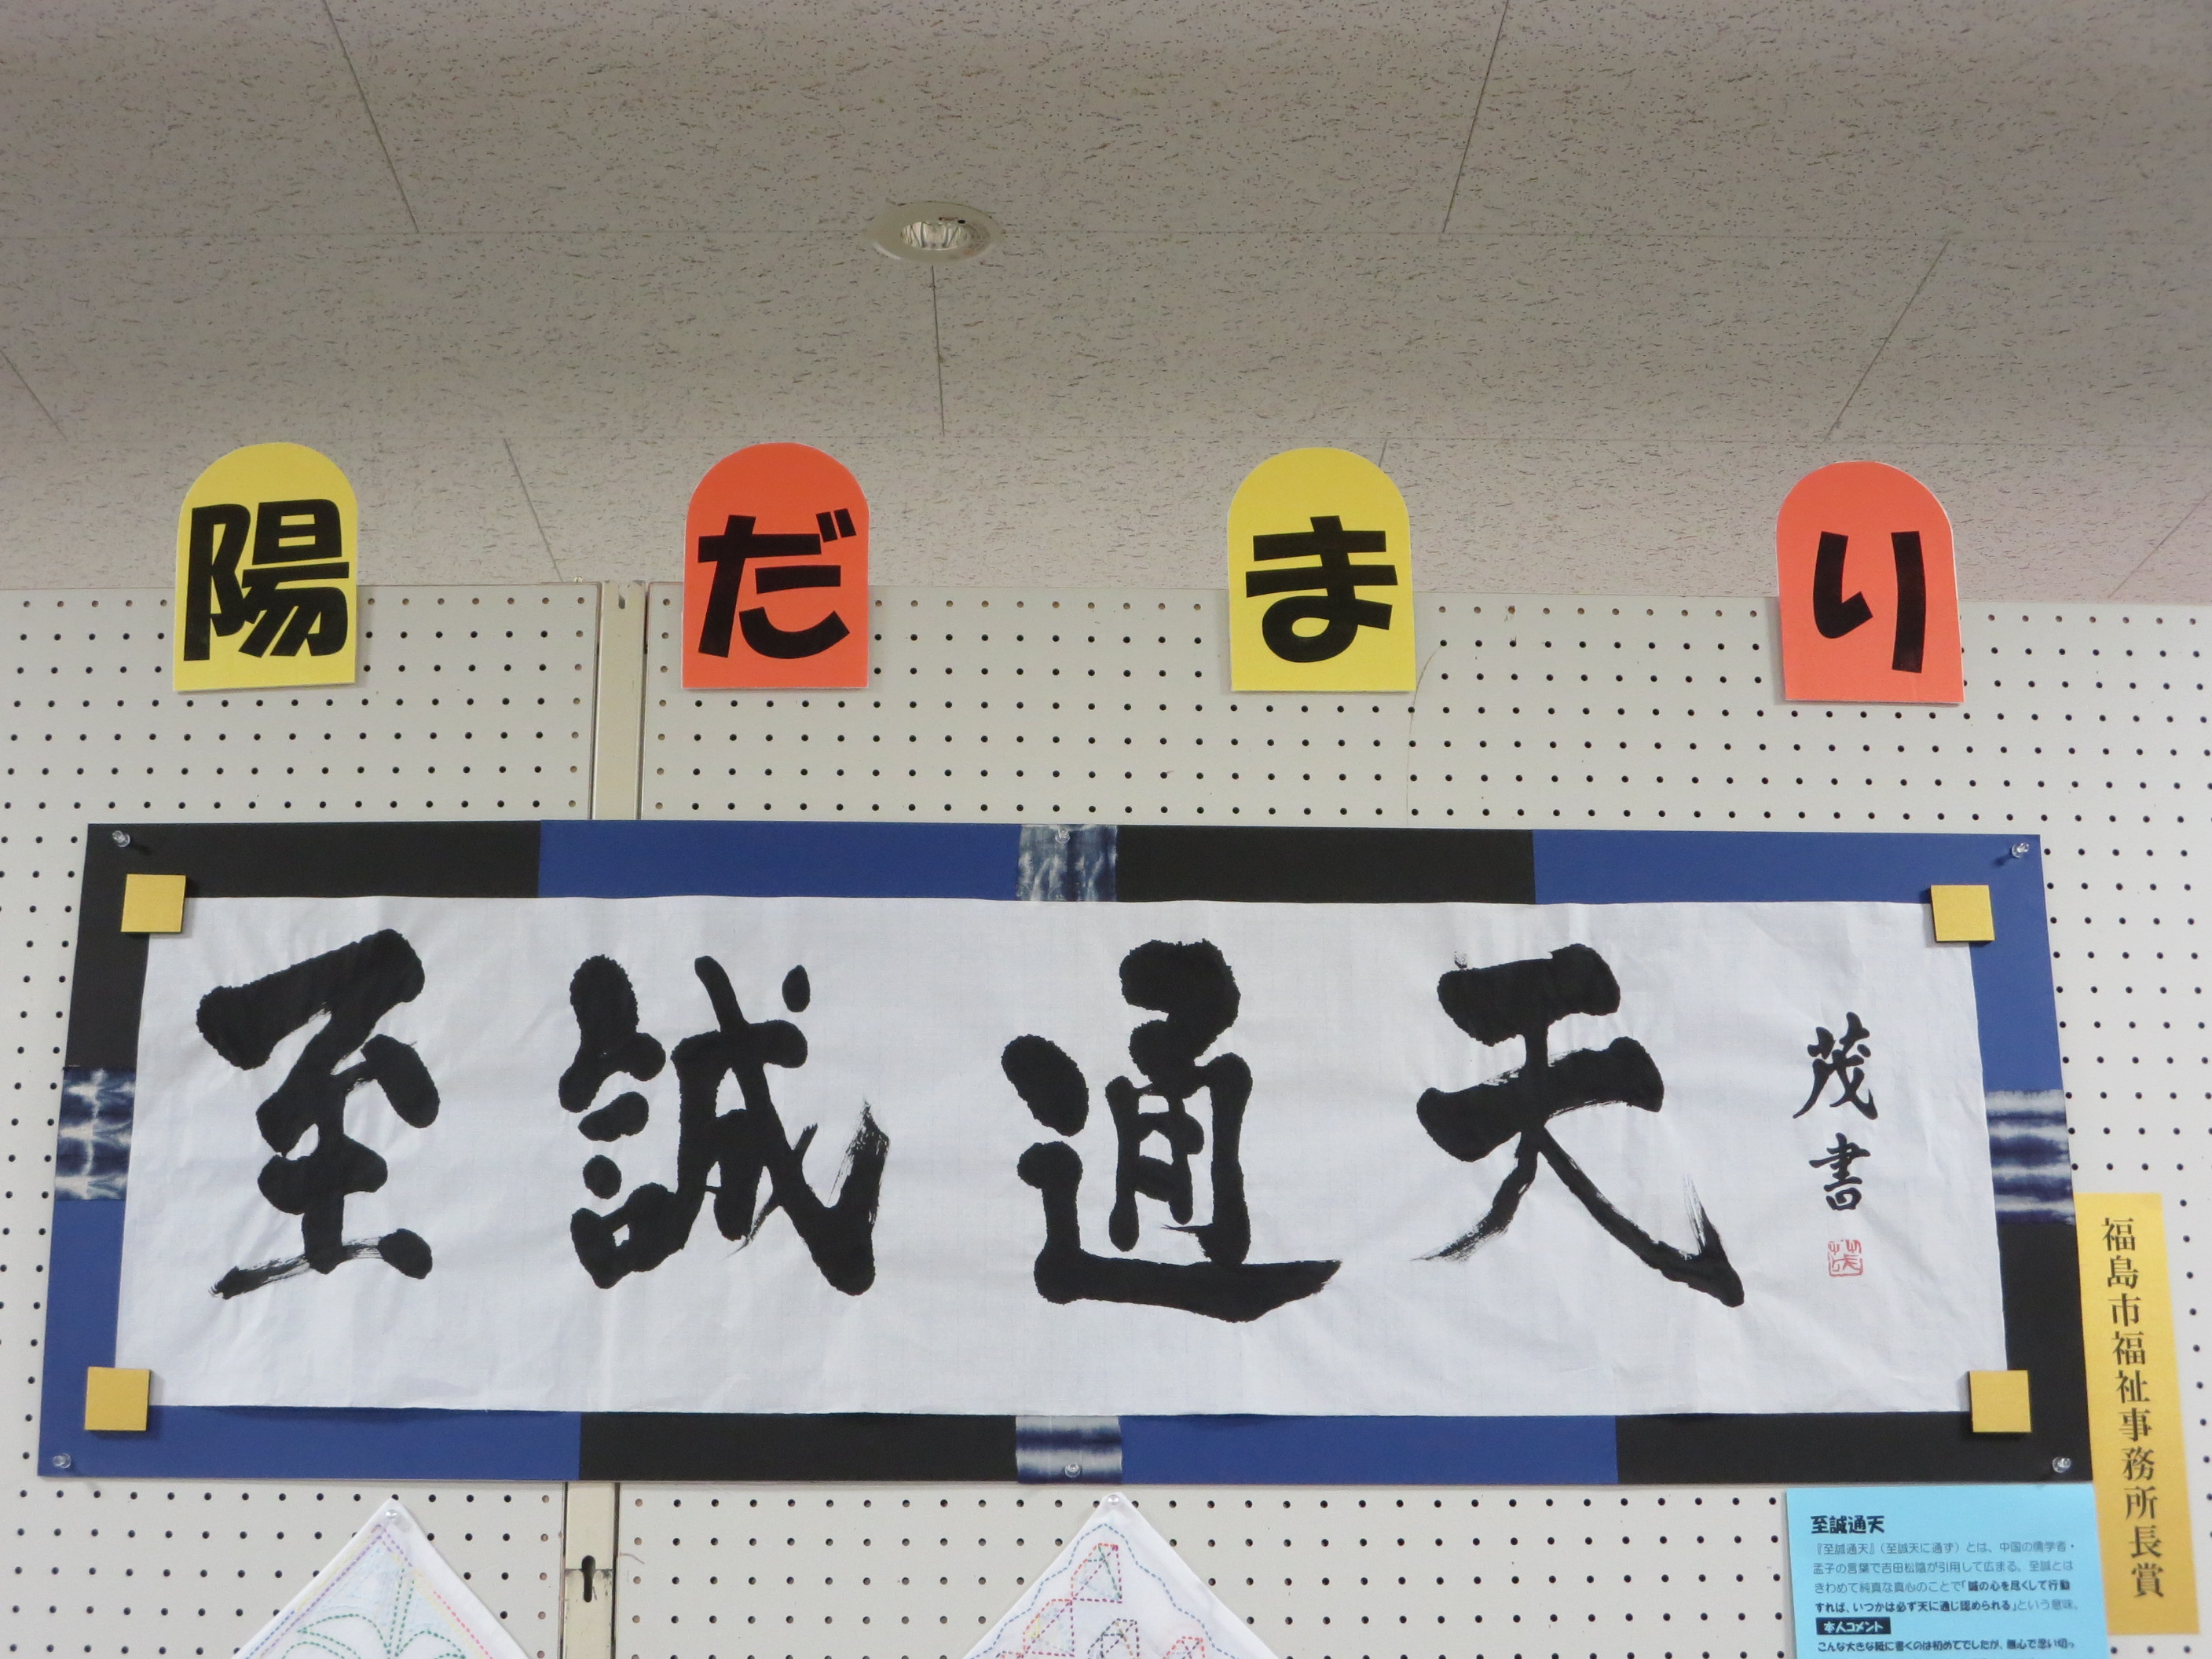 陽だまり
至誠通天
茂書
福島市福祉事務所長賞
至誠通天
『至誠通天』(至誠天に通ず)とは、中国の儒学者・
孟子の言葉で吉田松陰が引用して広まる。至誠とは
きわめて純真な真心のことで「誠の心を尽くして行動
すれば、いつかは必ず天に通じ認められる」という意味。
本人コメント
こんな大きな紙に書くのは初めてでしたが、無心で思い切っ